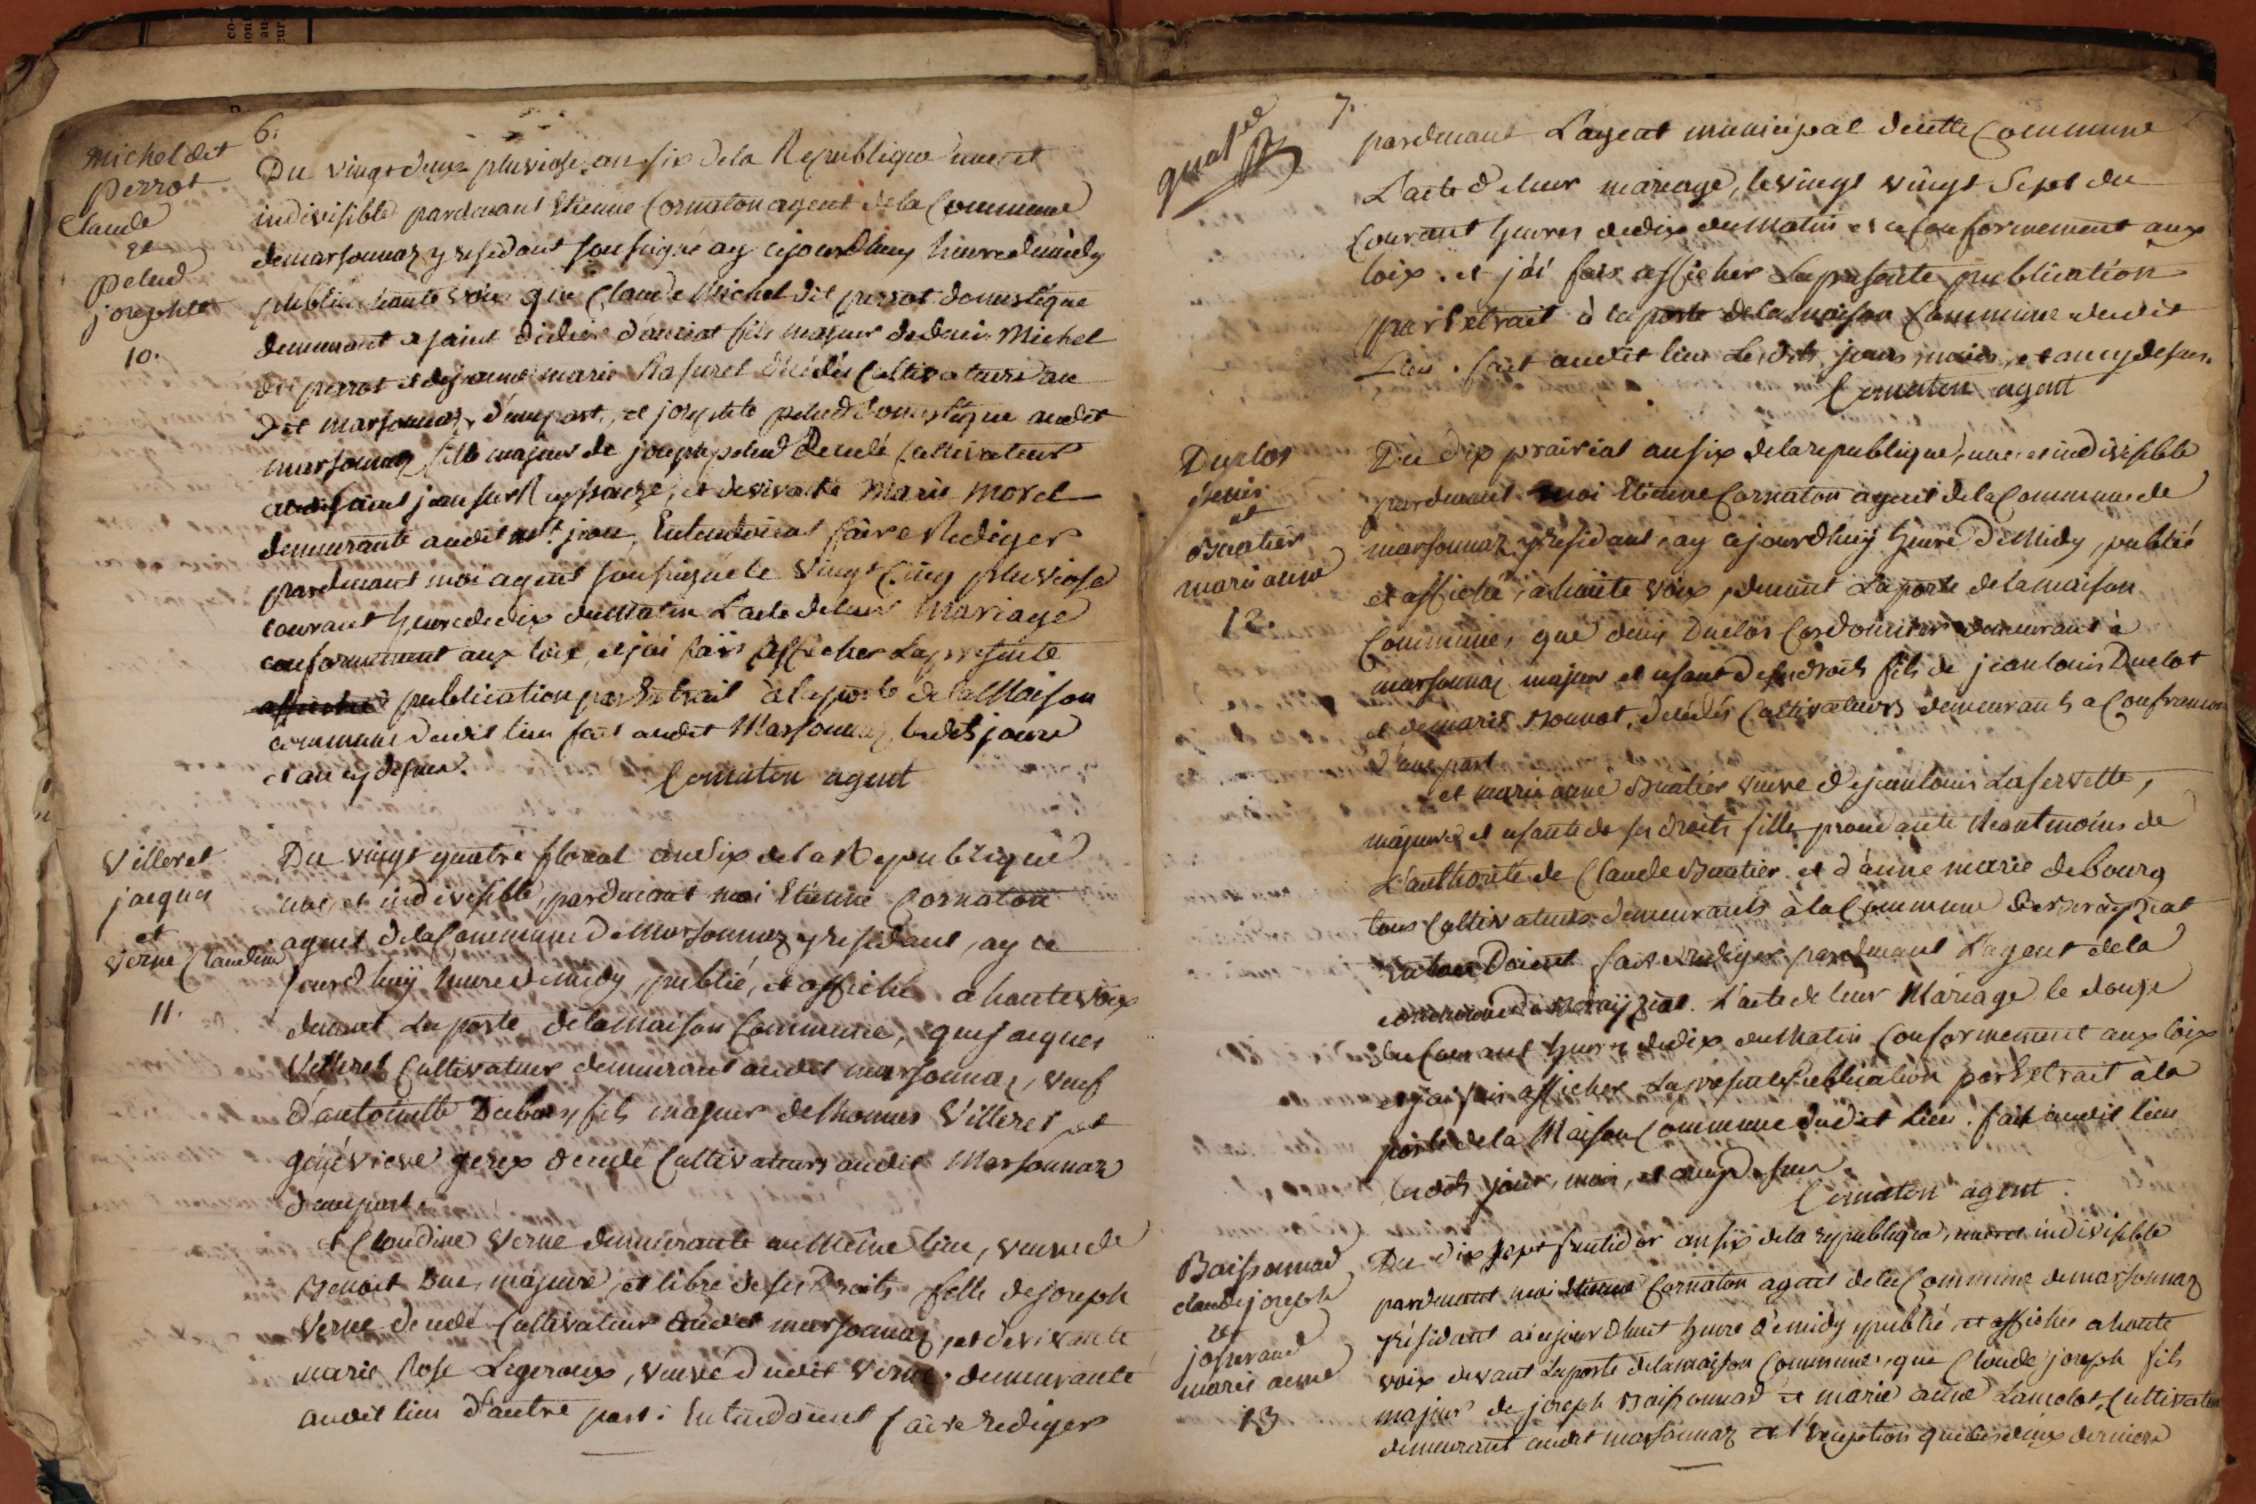 6.
Michel dit
perrot
Claude
et
pelud
josephte
10.
Du vingt deux pluviose an six dela Republique une et
indivisible pardevant Etienne Cornaton agent dela Commune
demarsonnaz y residant soussigné ay cejourdhuy heure demidy
publié haute voix que Claude Michel dit perrot domestique
demeurant a saint didier d'aussiat fils majeur de denis Michel
dit perrot et de jeanne marie Rasurel décédés Cultivateurs au
dit marsonnaz d'unepart, et josephte pelud domestique audit
marsonnaz fille majeur de joseph pelud Decedé Cultivateur
saint jean sur Reyssouze, et devivante Marie Morel
demeurante audit st. jean, Entendoient faire Rediger
pardevant moi agent soussigné le vingt Cinq pluviose
courant heure dedix dumatin L'acte deleur Mariage
conformement aux loix, et jai fais afficher Lapresente
publication par Extrait à laporte de la Maison
commune dudit lieu fait audit Marsonnaz, lesdits jours
et an cy dessus.
Cornaton agent
Villeret
jacques
et
verne Claudine
11.
Du vingt quatre floreal an six de la Republique
une, et indivisible, pardevant moi Etienne Cornaton
agent dela Commune De Marsonnaz y residant, ay ce
jourdhuy heure demidy, publié, et affiché a hautevoix
devant La porte delamaison Commune, que jacques
Villeret Cultivateur demeurant audit marsonnaz, veuf
d'antoinette Dubois, fils majeur dethomas Villeret et
géneviéve gerex décédé Cultivateurs audit Marsonnaz
d'unepart.
et Claudine Verne demeurante au Même lieu, veuve de
Benoit Duc, majeure, et libre de ses Droits fille dejoseph
Verne decedé Cultivateur audit marsonnaz, et devivante
marie Rose Legeroux, veuve dudit verne. demeurante
audit lieu d'autre part. Entendoient faire rediger
7.
pardevant L'agent municipal decette Commune
L'acte deleur mariage, le vingt vingt Sept du
Courant heures dedix dumatin et ce conformement aux
loix. et jái fais afficher Lapresente publication
par Extrait à laporte delamaison Commune dudit
Lieu. fait audit lieu Lesdits jours, mois, et an cy dessus.
Cornaton agent
Duclos
denis
et
Buatier
marie anne
12.
Du dix prairial an six dela republique, une, et indivisible
pardevant moi Etienne Cornaton agent dela Commune de
marsonnaz, y résidant, ay cejourdhuy heure De Midy, publié
et affiché, a haute voix, devant Laporte delamaison
Commune, que denis Duclos Cordonnier demeurant à
marsonnaz majeur et usant de ses droits fils de jean louis Duclot
et demarie Bonnot, decédés Cultivateurs demeurants a Confrancon
d'une part
et marie anne Buatier veuve de jean louis Laservette,
majeure et usante de ses droits fille, procedante Neantmoins de
L'authorité de Claude Buatier et d'anne marie debourg
tous Cultivateurs demeurants à la Commune
Entendoient faire rediger pardevant L'agent dela
L'acte de leur Mariage le douze
du Courant heure dedix dumatin Conformement aux loix
et jai fais afficher Lapresente publication par Extrait à la
porte dela Maison Commune dudit lieu. fait audit lieu
lesdits jour, mois, et an cy dessus.
Cornaton agent
Boissonnad
claude joseph
et
josserand
marie anne
13
Du dix sept fructidor an six dela republique, une et indivisible
pardevant moi Etienne Cornaton agent dela Commune demarsonnaz
yrésidant ai cejourdhuit heure demidy publié, et affiché a haute
voix devant Laporte delamaison Commune, que Claude joseph fils
majeur de joseph Boissonnad et marie anne Lamolot, Cultivateur
demeurant audit marsonnaz et l'exception que les deux derniers